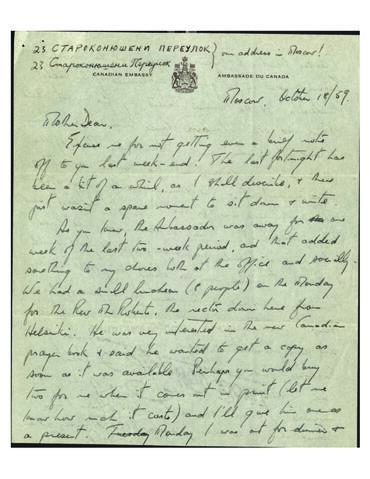 23 СТАРОКОНЮШЕНИ ПЕРЕУЛОК } our address in Moscow!
23 Староконюшени Переулок
CANADIAN EMBASSY
AMBASSADE DU CANADA
Moscow. October 18/59.
Mother Dear,
Excuse me for not getting even a brief note
off to you last week-end. The last fortnight has
been a bit of a whirl, as I shall describe, & there
just wasn't a spare moment to sit down & write.
As you know, the Ambassador was away for one
week of the last two-week period, and that added
something to my chores both at the office and socially.
We had a small luncheon ( people) on the Monday
for the Rev. Mr Roberts, the rector down here from
Helsinki. He was very interested in the new Canadian
prayer book & said he wanted to get a copy as
soon as it was available. Perhaps you would buy
two for me when it comes out in print (let me
know how much it costs) and I'll give him one as
a present. Tuesday Monday I was out for dinner &